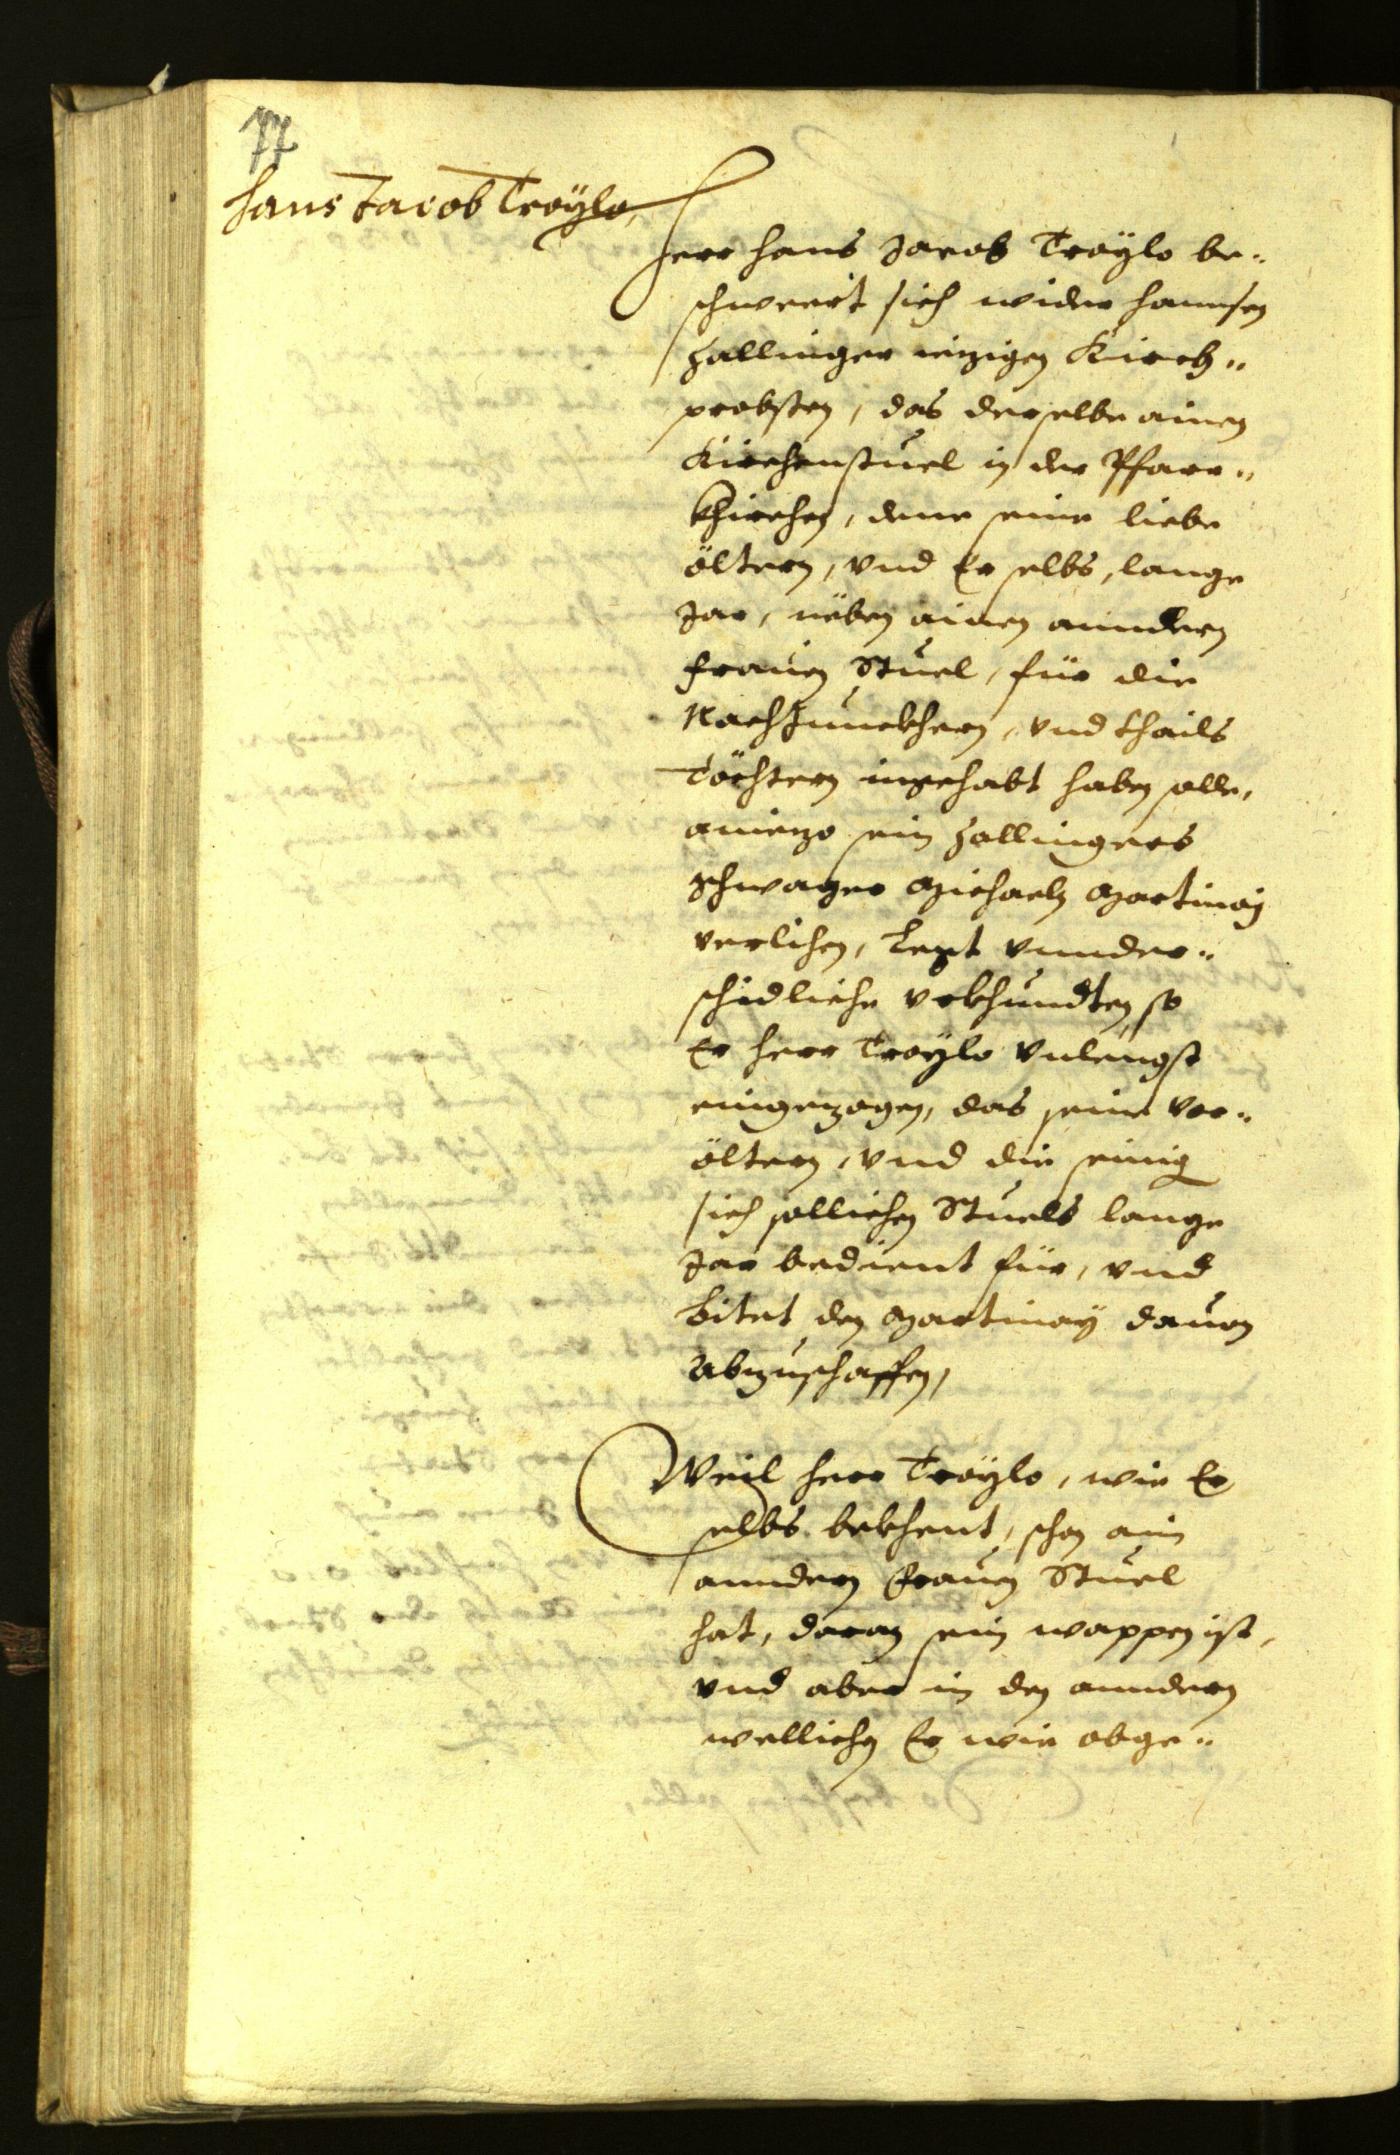 77
Hans Jacob Troylo,
Herr Hans Jacob Troylo be¬
schweert sich wider Hannsen
Zallinger iezigen Kirch¬
probsten, das derselbe ainen
Kirchenstuel in der Pfarr¬
khirchen, deme seine liebe
öltern, vnd Er selbs, lange
Jar, nëben ainen anndern
Frauen Stuel, für die
Nachzunekhern, vnd thails
Töchtern ingehabt haben solle,
aniezo sein Zallingers
Schwager Michaeln Martinoÿ
verlihen, legt vnnder¬
schidliche vrkhundten, so
Er Herr Troylo vnlengst
eingezogen, das seine Vor¬
öltern, vnd die seinig
sich sollichen Stuels lange
Jar bedient für, vnd
bitet den Martinoÿ dauon
Abzuschaffen,
Weil Herr Troylo, wie Er
selbs bekhent, schon ain
anndern Frauen Stuel
hat, daran sein wappen ist,
vnd aber in den anndern
wellichen Er wie obge¬